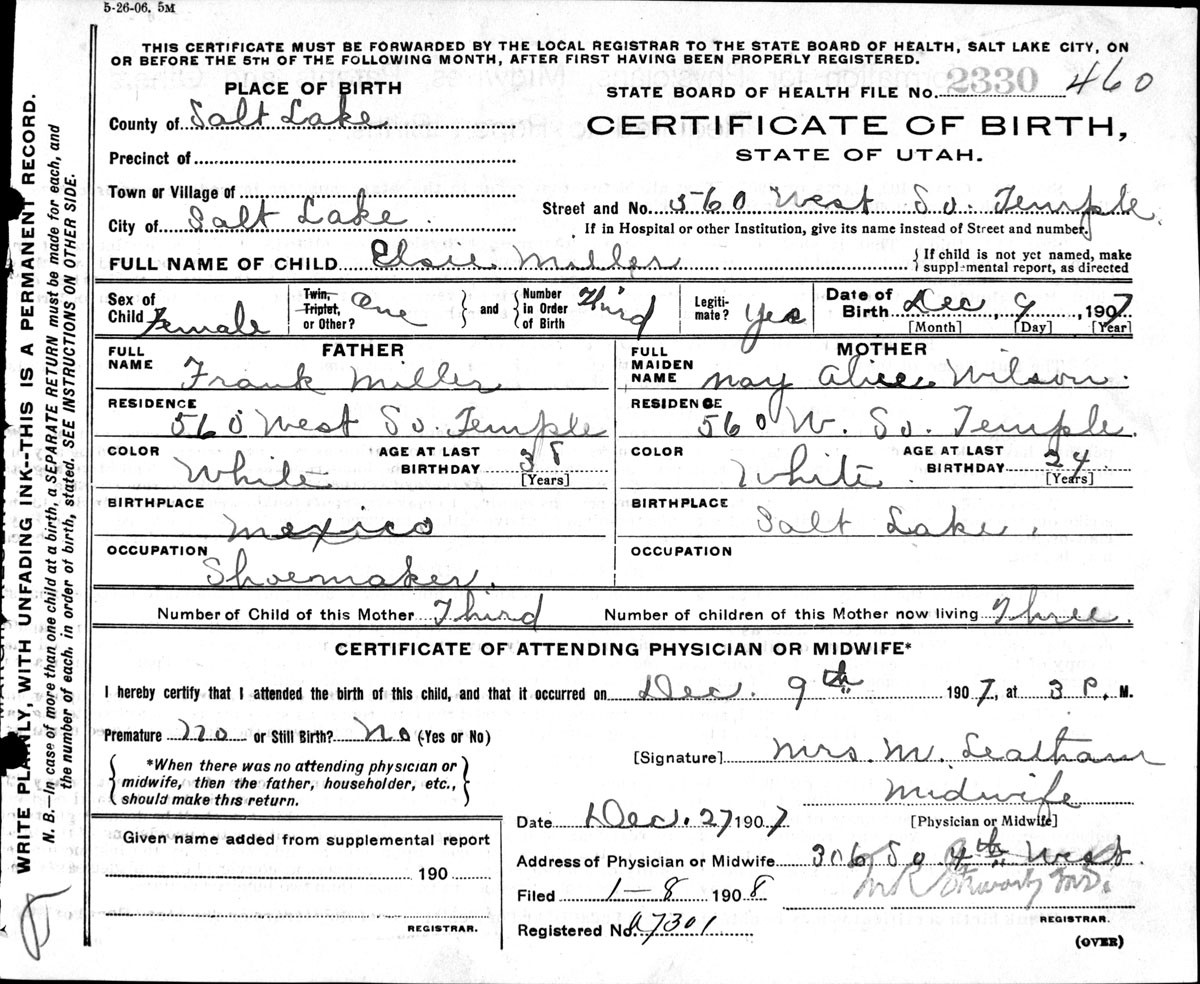 5-26-06. 5M
THIS CERTIFICATE MUST BE FORWARDED BY THE LOCAL REGISTRAR TO THE STATE BOARD OF HEALTH, SALT LAKE CITY, ON
OR BEFORE THE 5TH OF THE FOLLOWING MONTH, AFTER FIRST HAVING BEEN PROPERLY REGISTERED.
PLACE OF BIRTH
STATE BOARD OF HEALTH FILE No. 2330 460
County of Salt Lake
CERTIFICATE OF BIRTH,
STATE OF UTAH.
Precinct of
Town or Village of
City of Salt Lake.
Street and No. 560 West So. Temple
If in Hospital or other Institution, give its name instead of Street and number.
FULL NAME OF CHILD Elsie Miller
If child is not yet named, make
supplemental report, as directed
Sex of Child Female
Twin, Triplet, or Other? One
and
Number in Order of Birth Third
Legitimate? Yes
Date of Birth Dec 9, 1907
[Month] [Day] [Year]
FATHER
FULL NAME Frank Miller
RESIDENCE
560 West So. Temple
COLOR White
AGE AT LAST BIRTHDAY 38
[Years]
BIRTHPLACE
Mexico
OCCUPATION
Shoemaker.
MOTHER
FULL MAIDEN NAME May Alice Wilson.
RESIDENCE
560 W. So. Temple.
COLOR White.
AGE AT LAST BIRTHDAY 24
[Years]
BIRTHPLACE
Salt Lake.
OCCUPATION
Number of Child of this Mother Third
Number of children of this Mother now living Three.
CERTIFICATE OF ATTENDING PHYSICIAN OR MIDWIFE*
I hereby certify that I attended the birth of this child, and that it occurred on Dec. 9th 1907, at 3 P. M.
Premature No or Still Birth? No (Yes or No)
*When there was no attending physician or
midwife, then the father, householder, etc.,
should make this return.
[Signature] Mrs. M. Leatham
Midwife
[Physician or Midwife]
Date Dec. 27 1907
Address of Physician or Midwife 306 So 4th West.
Filed 1-8 1908
REGISTRAR.
Registered No. 7301
(OVER)
Given name added from supplemental report
190
REGISTRAR.
WRITE PLAINLY, WITH UNFADING INK--THIS IS A PERMANENT RECORD.
N. B.—In case of more than one child at a birth, a SEPARATE RETURN must be made for each, and
the number of each, in order of birth, stated. SEE INSTRUCTIONS ON OTHER SIDE.